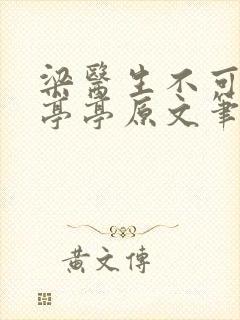 梁醫生不可
亭亭原文筆
黃文傳